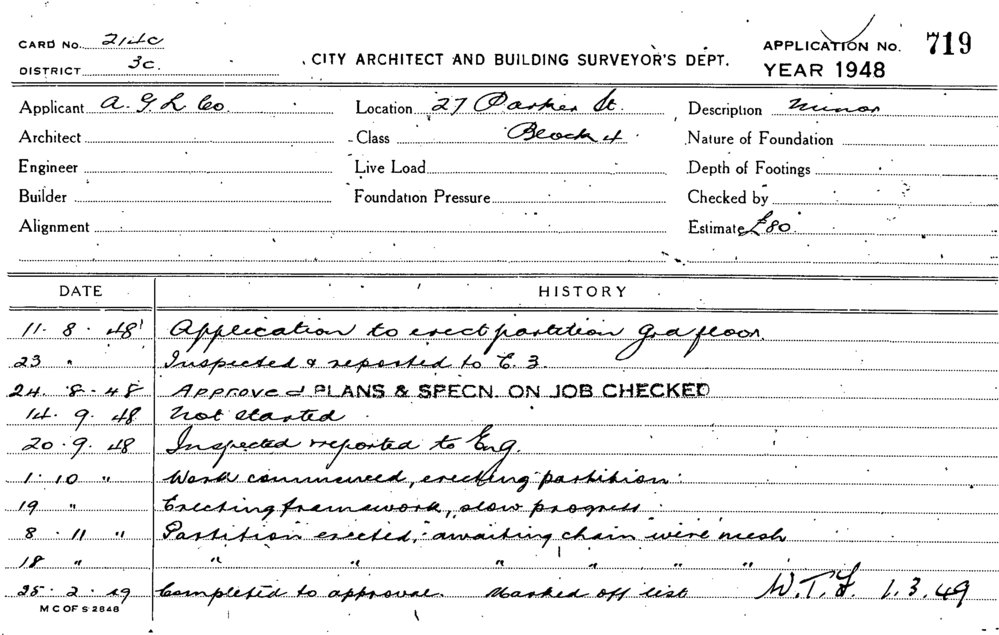 CARD No. 214c
DISTRICT 3c.
CITY ARCHITECT AND BUILDING SURVEYOR'S DEPT.
APPLICATION No. 719
YEAR 1948
Applicant A. G. L Co. Location 27 Parker St. Description Minor
Architect Class Block 4 Nature of Foundation
Engineer Live Load Depth of Footings
Builder Foundation Pressure Checked by
Alignment Estimate £80
DATE HISTORY
11. 8. 48 Application to erect partition Grd floor.
23 " Inspected & reported to E. 3.
24. 8. 48 Approved PLANS & SPECN. ON JOB CHECKED
14. 9. 48 Not started
20. 9. 48 Inspected & reported to Eng.
1. 10 " Work commenced, erecting partition
19 " Erecting framework, slow progress
8. 11 " Partition erected, awaiting chain wire mesh
18 " " " " " " "
25. 2. 49 Completed to approval. Marked off list W. T. F. 1. 3. 49
M C OF S 2848